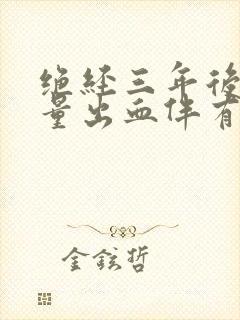 绝经三年後
量出血伴有
金鉉哲